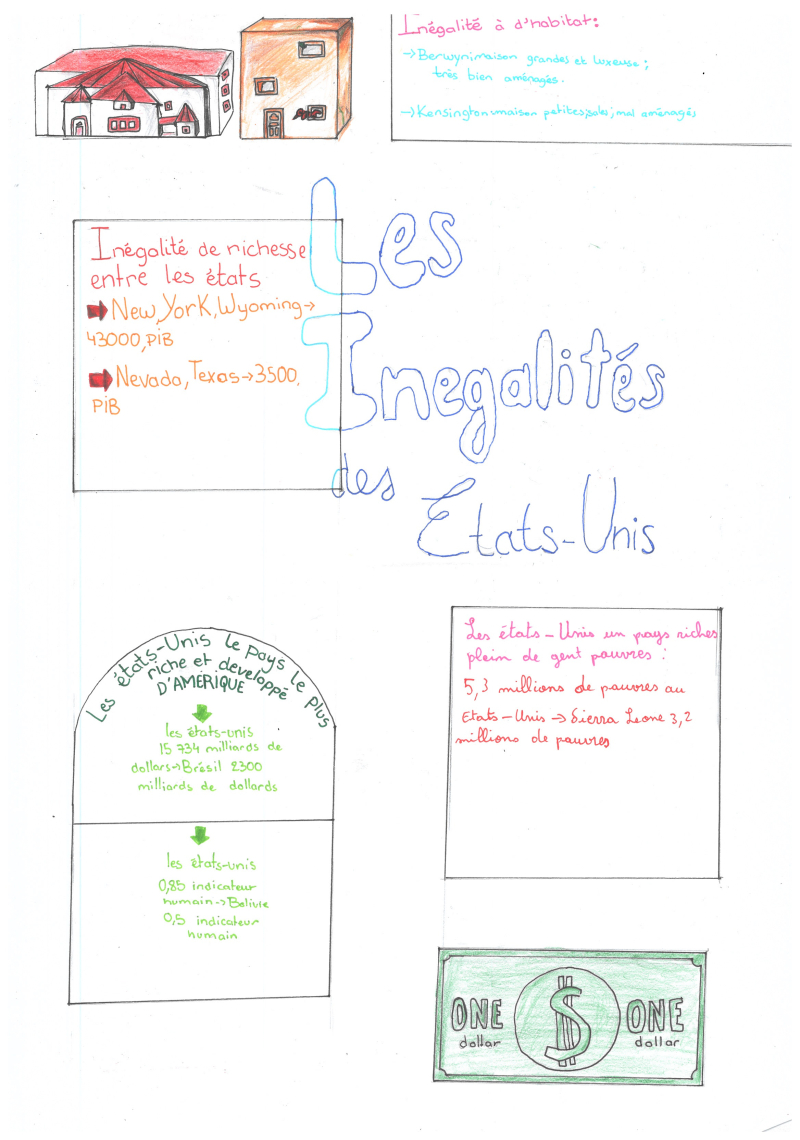 Inégalité à d'habitat:
→Berwyn:maison grandes et luxeuse;
très bien aménagés.
→Kensington:maison petites;sales;mal aménagés
Les
Inegalités
des
États-Unis
Inégalité de richesse
entre les états
New York, Wyoming→
43000, PiB
Nevada, Texas→3500,
PiB
Les états-Unis le pays le plus
riche et developpé
D'AMERIQUE
les états-unis
15 734 milliards de
dollars→Brésil 2300
milliards de dollards
les états-unis
0,85 indicateur
humain→Bolivie
0,5 indicateur
humain
Les états-Unis un pays riches
plein de gent pauvres :
5,3 millions de pauvres au
Etats-Unis → Sierra Leone 3,2
millions de pauvres
ONE ONE
dollar dollar